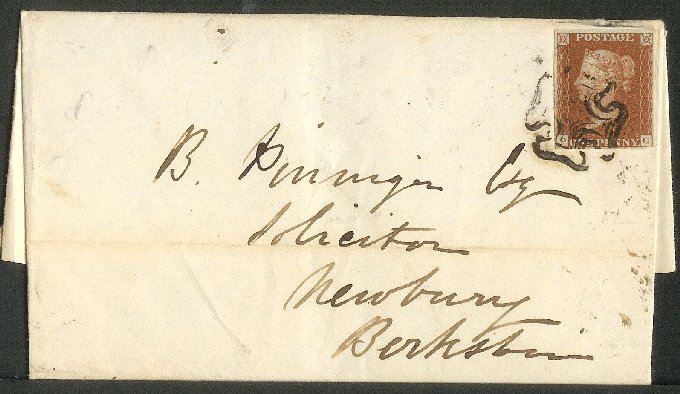 POSTAGE
ONE PENNY
B. Pinniger Esq
Solicitor
Newbury
Berkshire